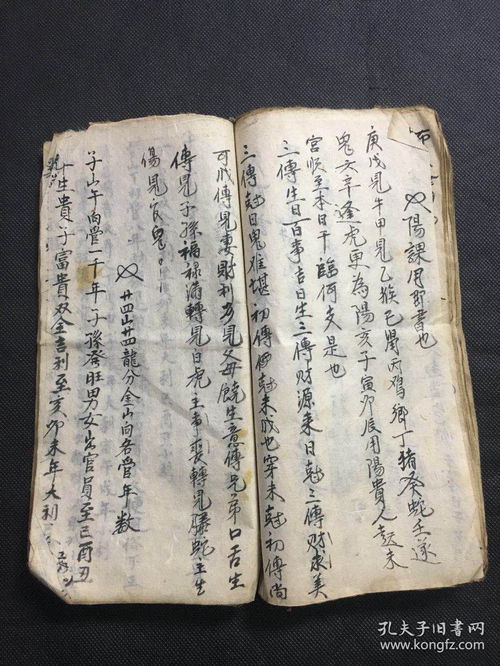 陽課用即書也
庚戊見牛甲見乙猴己閗丙鸡鄉丁猪癸蛇壬逐
鬼六辛逢虎更為陽亥子寅卯辰用陽貴人起未
宮順至本日干臨何支是也
三傳生日百事吉日生三傳財源来日尅三傳財求美
三傳尅日鬼难堪初傳尅未成也窂未尅初傳尚
可成傳見妻財利方見父母饒生意傳兄弟口舌生
傳見子孫福祿满轉見白虎主喪轉見螣蛇主生
傷見官鬼
廿四山廿四龍分金山向各管年数
子山午向管一千年子孫發旺男女出官員至巳酉丑
生貴子富貴双全吉利至亥卯未年大利
孔夫子旧书网
www.kongfz.com